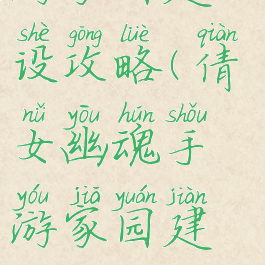 shè gōng lüè qiàn
设攻略(倩
nǚ yōu hún shǒu
女幽魂手
yóu jiā yuán jiàn
游家园建